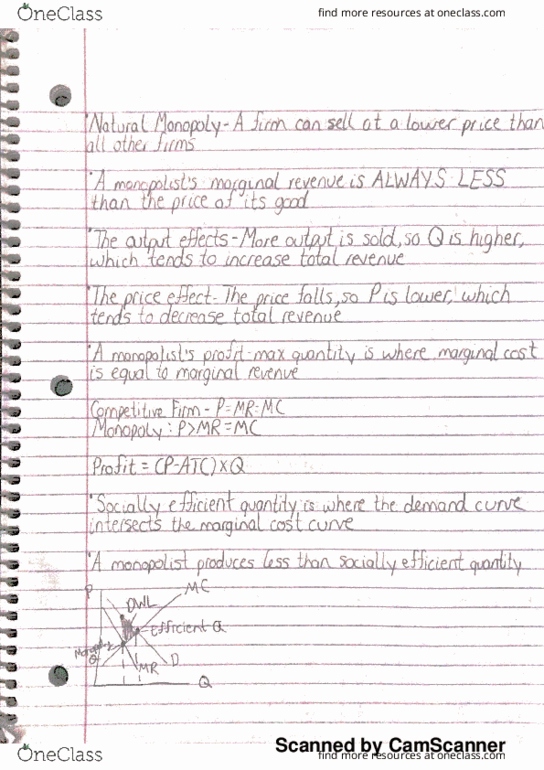 OneClass
find more resources at oneclass.com
Natural Monopoly - A firm can sell at a lower price than
all other firms
A monopolist's marginal revenue is ALWAYS LESS
than the price of its good
The output effects - More output is sold, so Q is higher,
which tends to increase total revenue
The price effect - The price falls, so P is lower, which
tends to decrease total revenue
A monopolist's profit-max quantity is where marginal cost
is equal to marginal revenue
Competitive Firm - P=MR=MC
Monopoly: P>MR=MC
Profit = (P-ATC)×Q
Socially efficient quantity is where the demand curve
intersects the marginal cost curve
A monopolist produces less than socially efficient quantity
P
MC
DWL
Efficient Q
Monopoly
Q
MR
D
Q
Scanned by CamScanner
OneClass
find more resources at oneclass.com